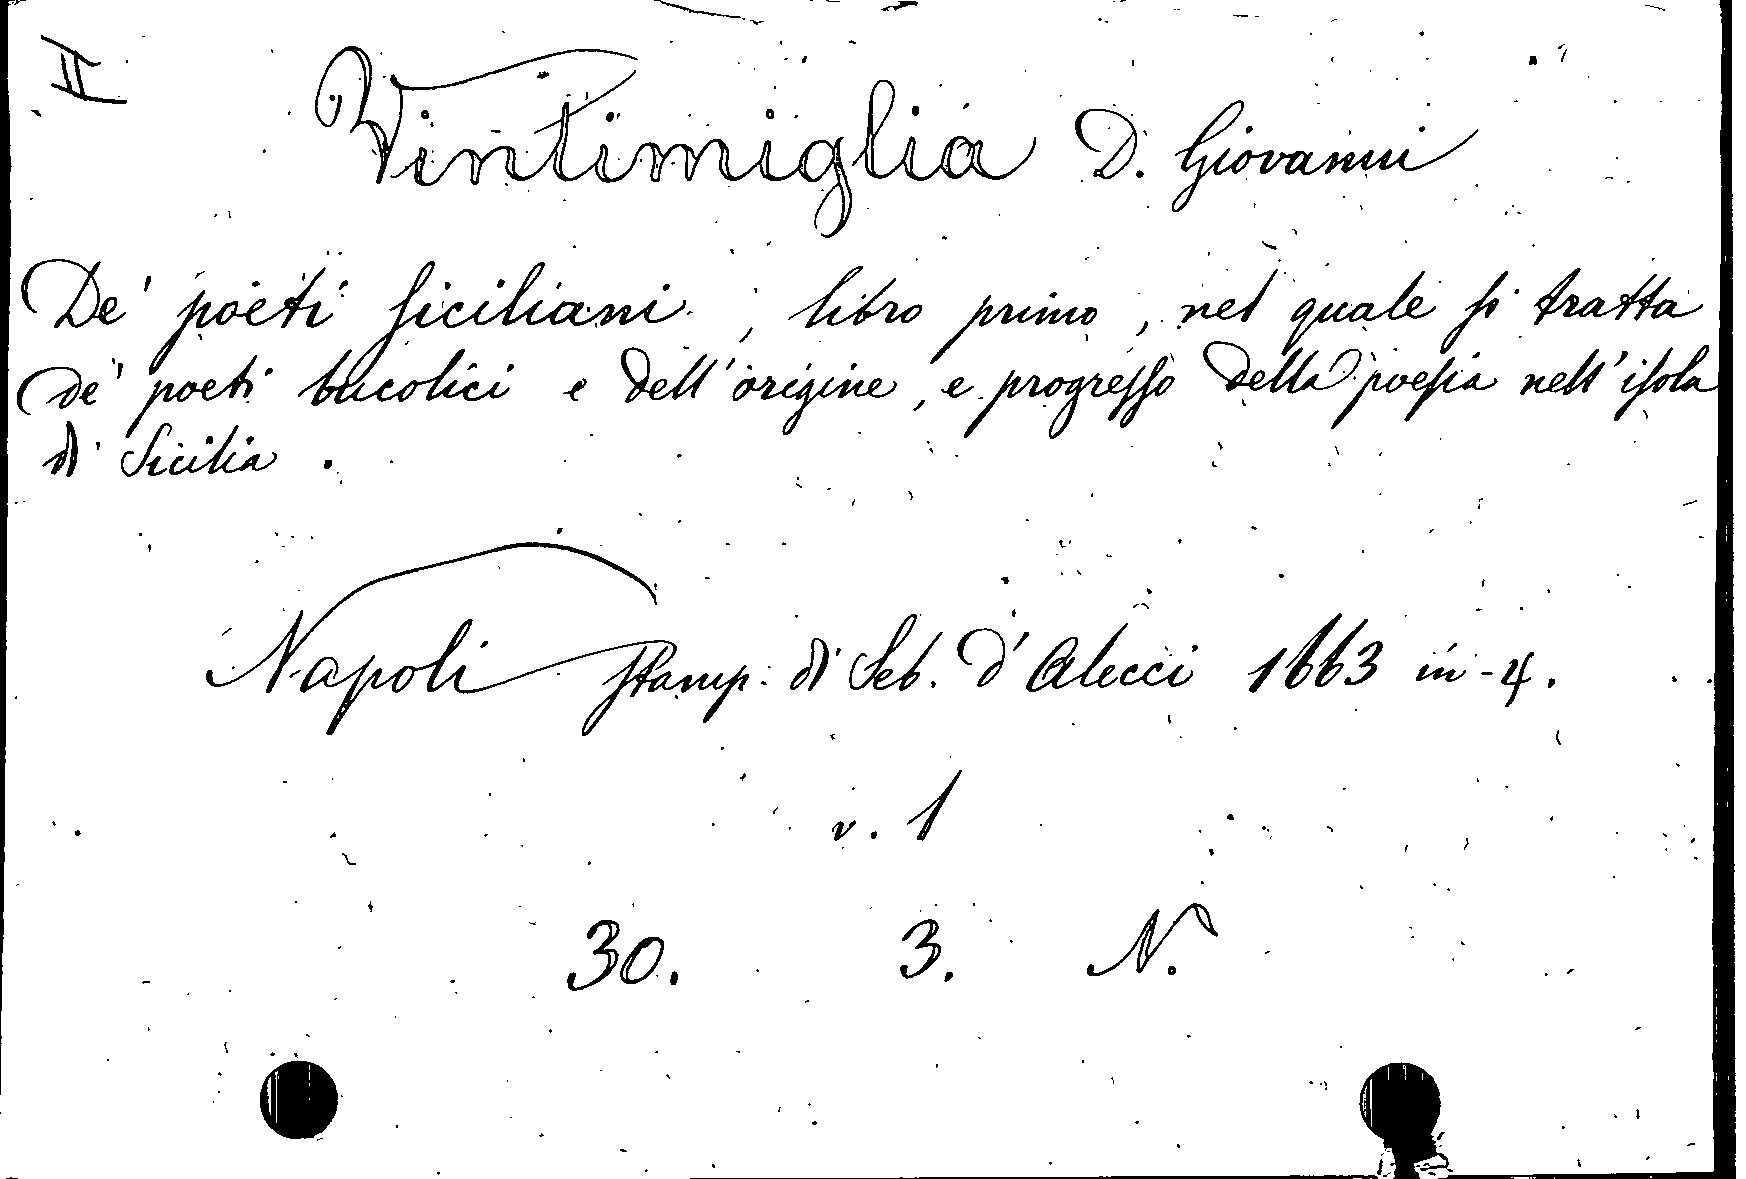 II
Vintimiglia D. Giovanni
De' poeti siciliani, libro primo, nel quale si tratta
de' poeti bucolici e dell'origine, e progresso della poesia nell'isola
di Sicilia.
Napoli stamp. di Seb. d'Alecci 1663 in-4.
v. 1
30. 3. N.